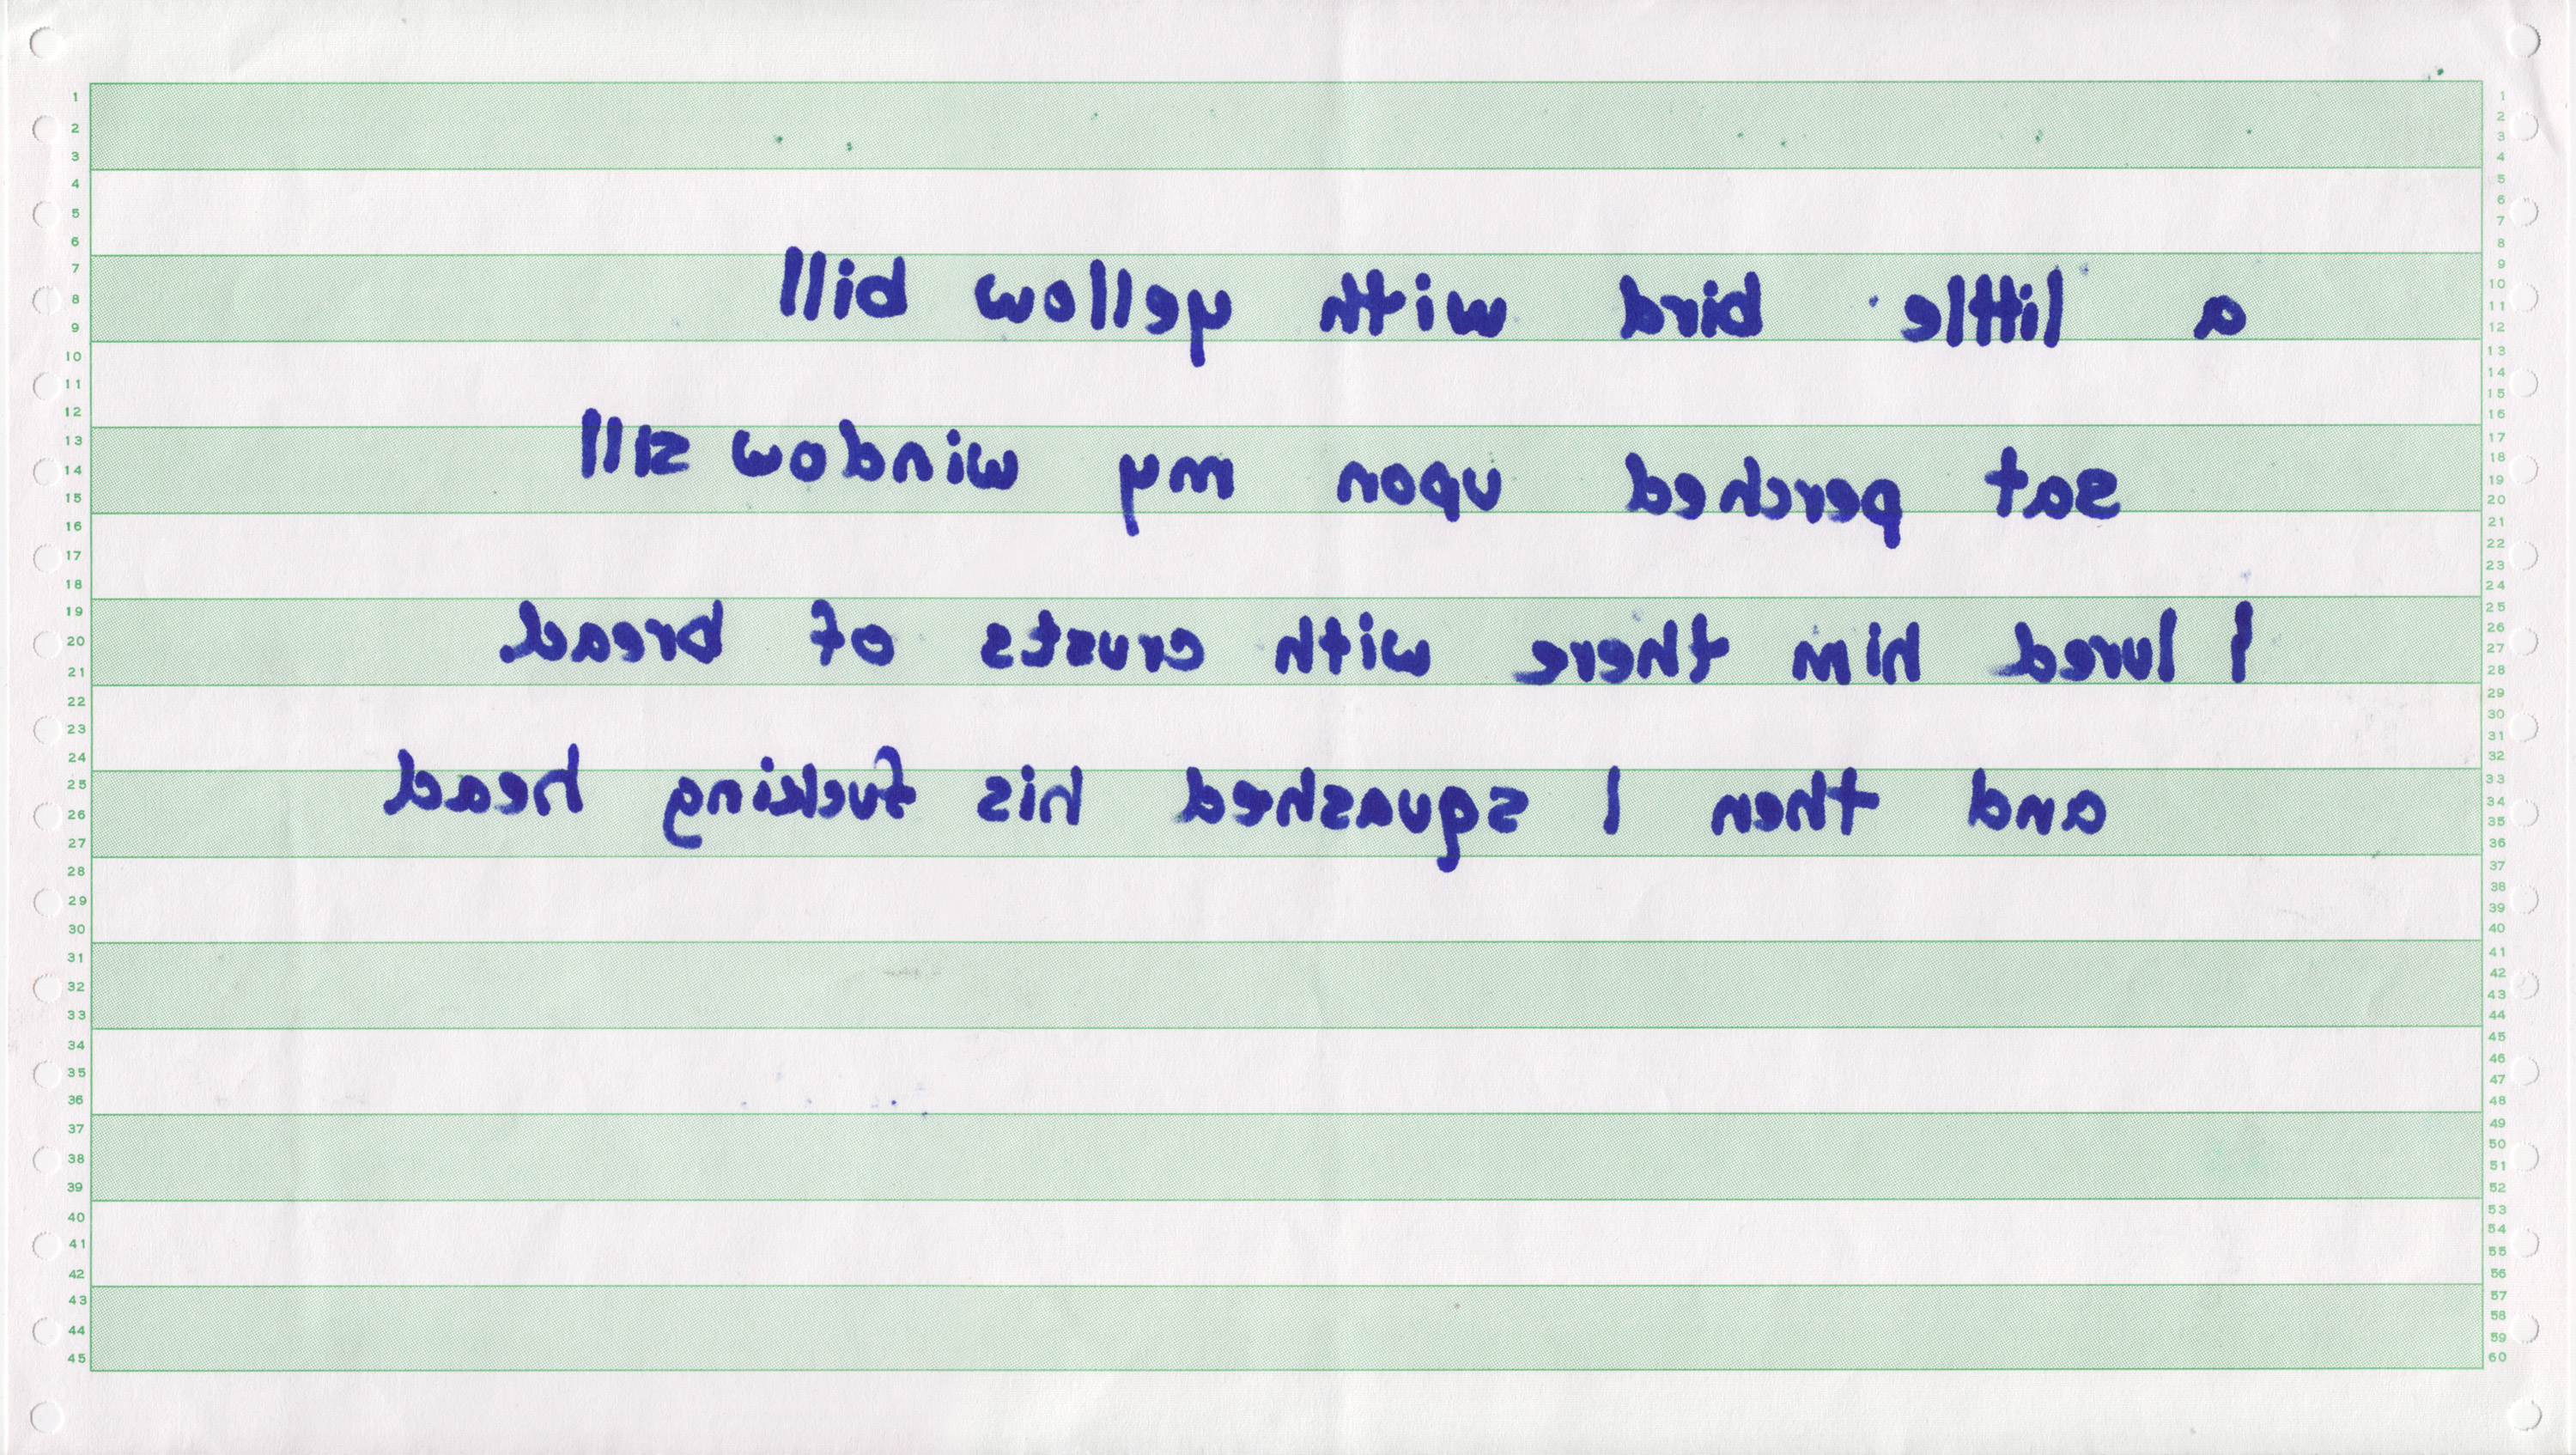 a little bird with yellow bill
sat perched upon my window sill
I lured him there with crusts of bread.
and then I squashed his fucking head
1
2
3
4
5
6
7
8
9
10
11
12
13
14
15
16
17
18
19
20
21
22
23
24
25
26
27
28
29
30
31
32
33
34
35
36
37
38
39
40
41
42
43
44
45
1
2
3
4
5
6
7
8
9
10
11
12
13
14
15
16
17
18
19
20
21
22
23
24
25
26
27
28
29
30
31
32
33
34
35
36
37
38
39
40
41
42
43
44
45
46
47
48
49
50
51
52
53
54
55
56
57
58
59
60